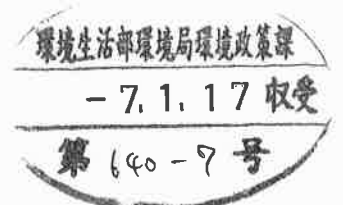 環境生活部環境局環境政策課
-7.1.17 収受
第 640-7 号